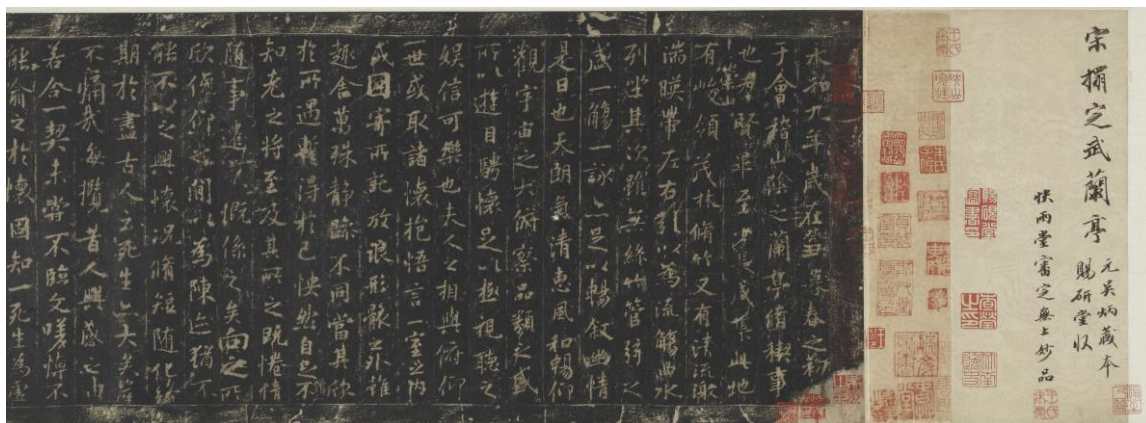 宋搨定武蘭亭
元吳炳藏本
賜研堂收
快雨堂審定無上妙品
永和九年歲在癸丑春之初
于會稽山陰之蘭亭脩稧事
也羣賢畢至少長咸集此地
有峻領茂林脩竹又有清流激
湍暎帶左右引以為流觴曲水
列坐其次雖無絲竹管弦之
盛一觴一詠亦足以暢敘幽情
是日也天朗氣清惠風和暢仰
觀宇宙之大俯察品類之盛
所以遊目騁懷足以極視聽之
娛信可樂也夫人之相與俯仰
一世或取諸懷抱悟言一室之內
或因寄所託放浪形骸之外雖
趣舍萬殊靜躁不同當其欣
於所遇暫得於己怏然自足不
知老之將至及其所之既惓情
隨事遷感慨係之矣向之所
欣俛仰之閒以為陳迹猶不
能不以之興懷況脩短隨化終
期於盡古人云死生亦大矣豈
不痛哉每攬昔人興感之由
若合一契未嘗不臨文嗟悼不
能喻之於懷固知一死生為虛